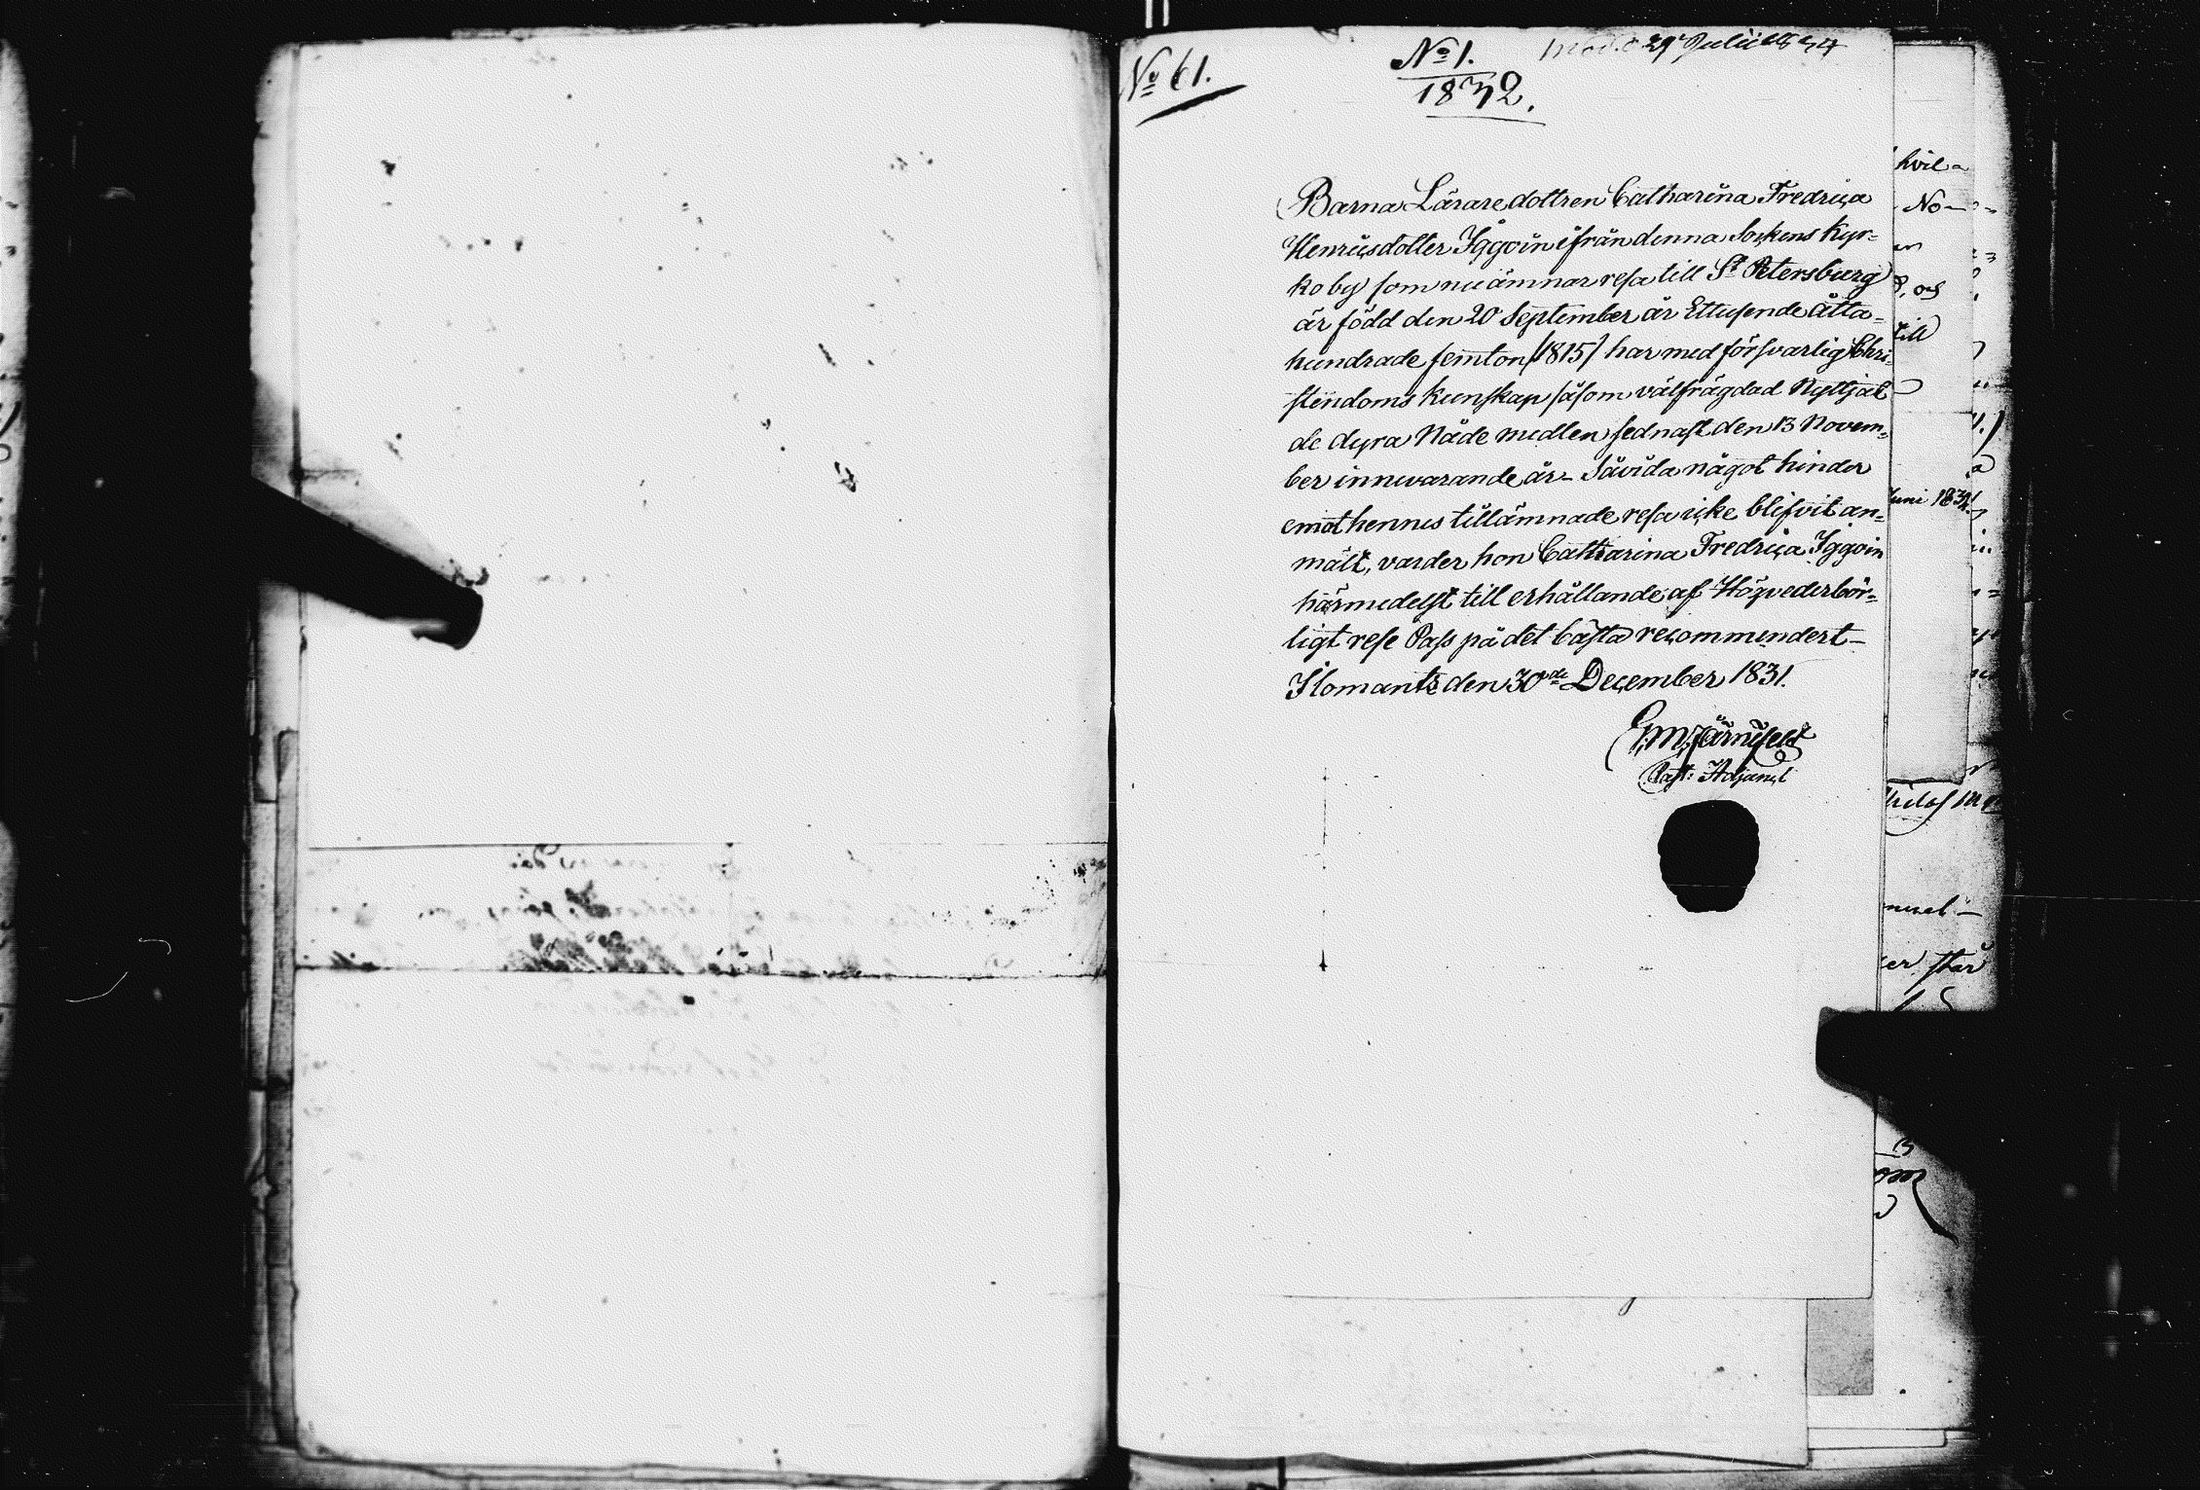 No 61.
No 1.
1832.
29 Julii 1834
Barna Lärare dottren Catharina Fredrica
Henricsdotter Iggoin ifrån denna Sockens Kyr=
ko by som nu ämnar resa till St Petersburg
är född den 20 September år Ettusende åtta=
hundrade femton /1815/ har med försvarlig Chri=
stendoms kunskap såsom välfrägdad Nyttjat
de dyra Nåde medlen sednast den 13 Novem=
ber innevarande år – Såvida något hinder
emot hennes tillämnade resa icke blifvit an=
mält, varder hon Catharina Fredrica Iggoin
härmedelst till erhållande af Högvederbör=
ligt rese Pass på det bästa recommendert –
Ilomants den 30de December 1831.
Past: Adjunct
hvil
No
och
till
Juni 1834
er står